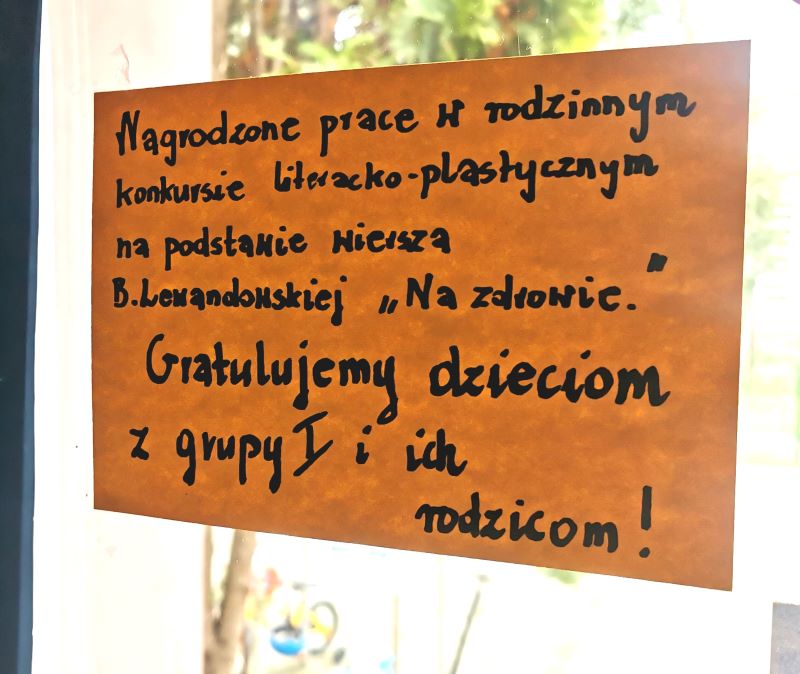 Nagrodzone prace w rodzinnym
konkursie literacko-plastycznym
na podstawie wiersza
B. Lewandowskiej „Na zdrowie."
Gratulujemy dzieciom
z grupy I i ich
rodzicom!